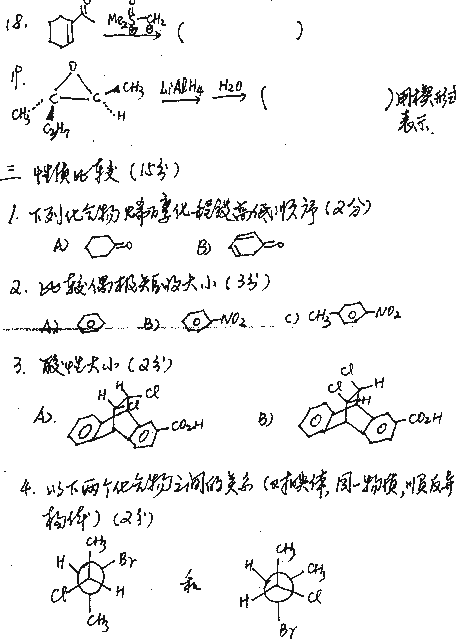 18. O Me₂S–CH₂ O ⊕ ⊖ ( )
19. O CH₃ LiAlH₄ H₂O ( )用楔形式
CH₃ C C H 表示.
C₃H₇
三 性质比较 (15分)
1. 下列化合物烯醇化程度高低顺序 (2分)
A) =O B) =O
2. 比较偶极矩的大小 (3分)
A) B) –NO₂ C) CH₃– –NO₂
3. 酸性大小 (2分)
A). H H Cl Cl CO₂H B) Cl Cl H H CO₂H
4. 以下两个化合物之间的关系 (对映体, 同一物质, 顺反异
构体) (2分)
CH₃ CH₃
H Br 和 CH₃
Cl H H Cl
CH₃ Br